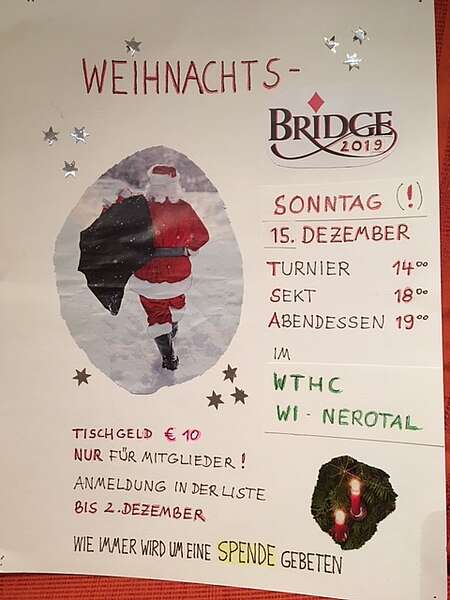 WEIHNACHTS-
BRIDGE
2019
SONNTAG (!)
15. DEZEMBER
TURNIER 14ºº
SEKT 18ºº
ABENDESSEN 19ºº
IM
WTHC
WI - NEROTAL
TISCHGELD € 10
NUR FÜR MITGLIEDER!
ANMELDUNG IN DER LISTE
BIS 2. DEZEMBER
WIE IMMER WIRD UM EINE SPENDE GEBETEN